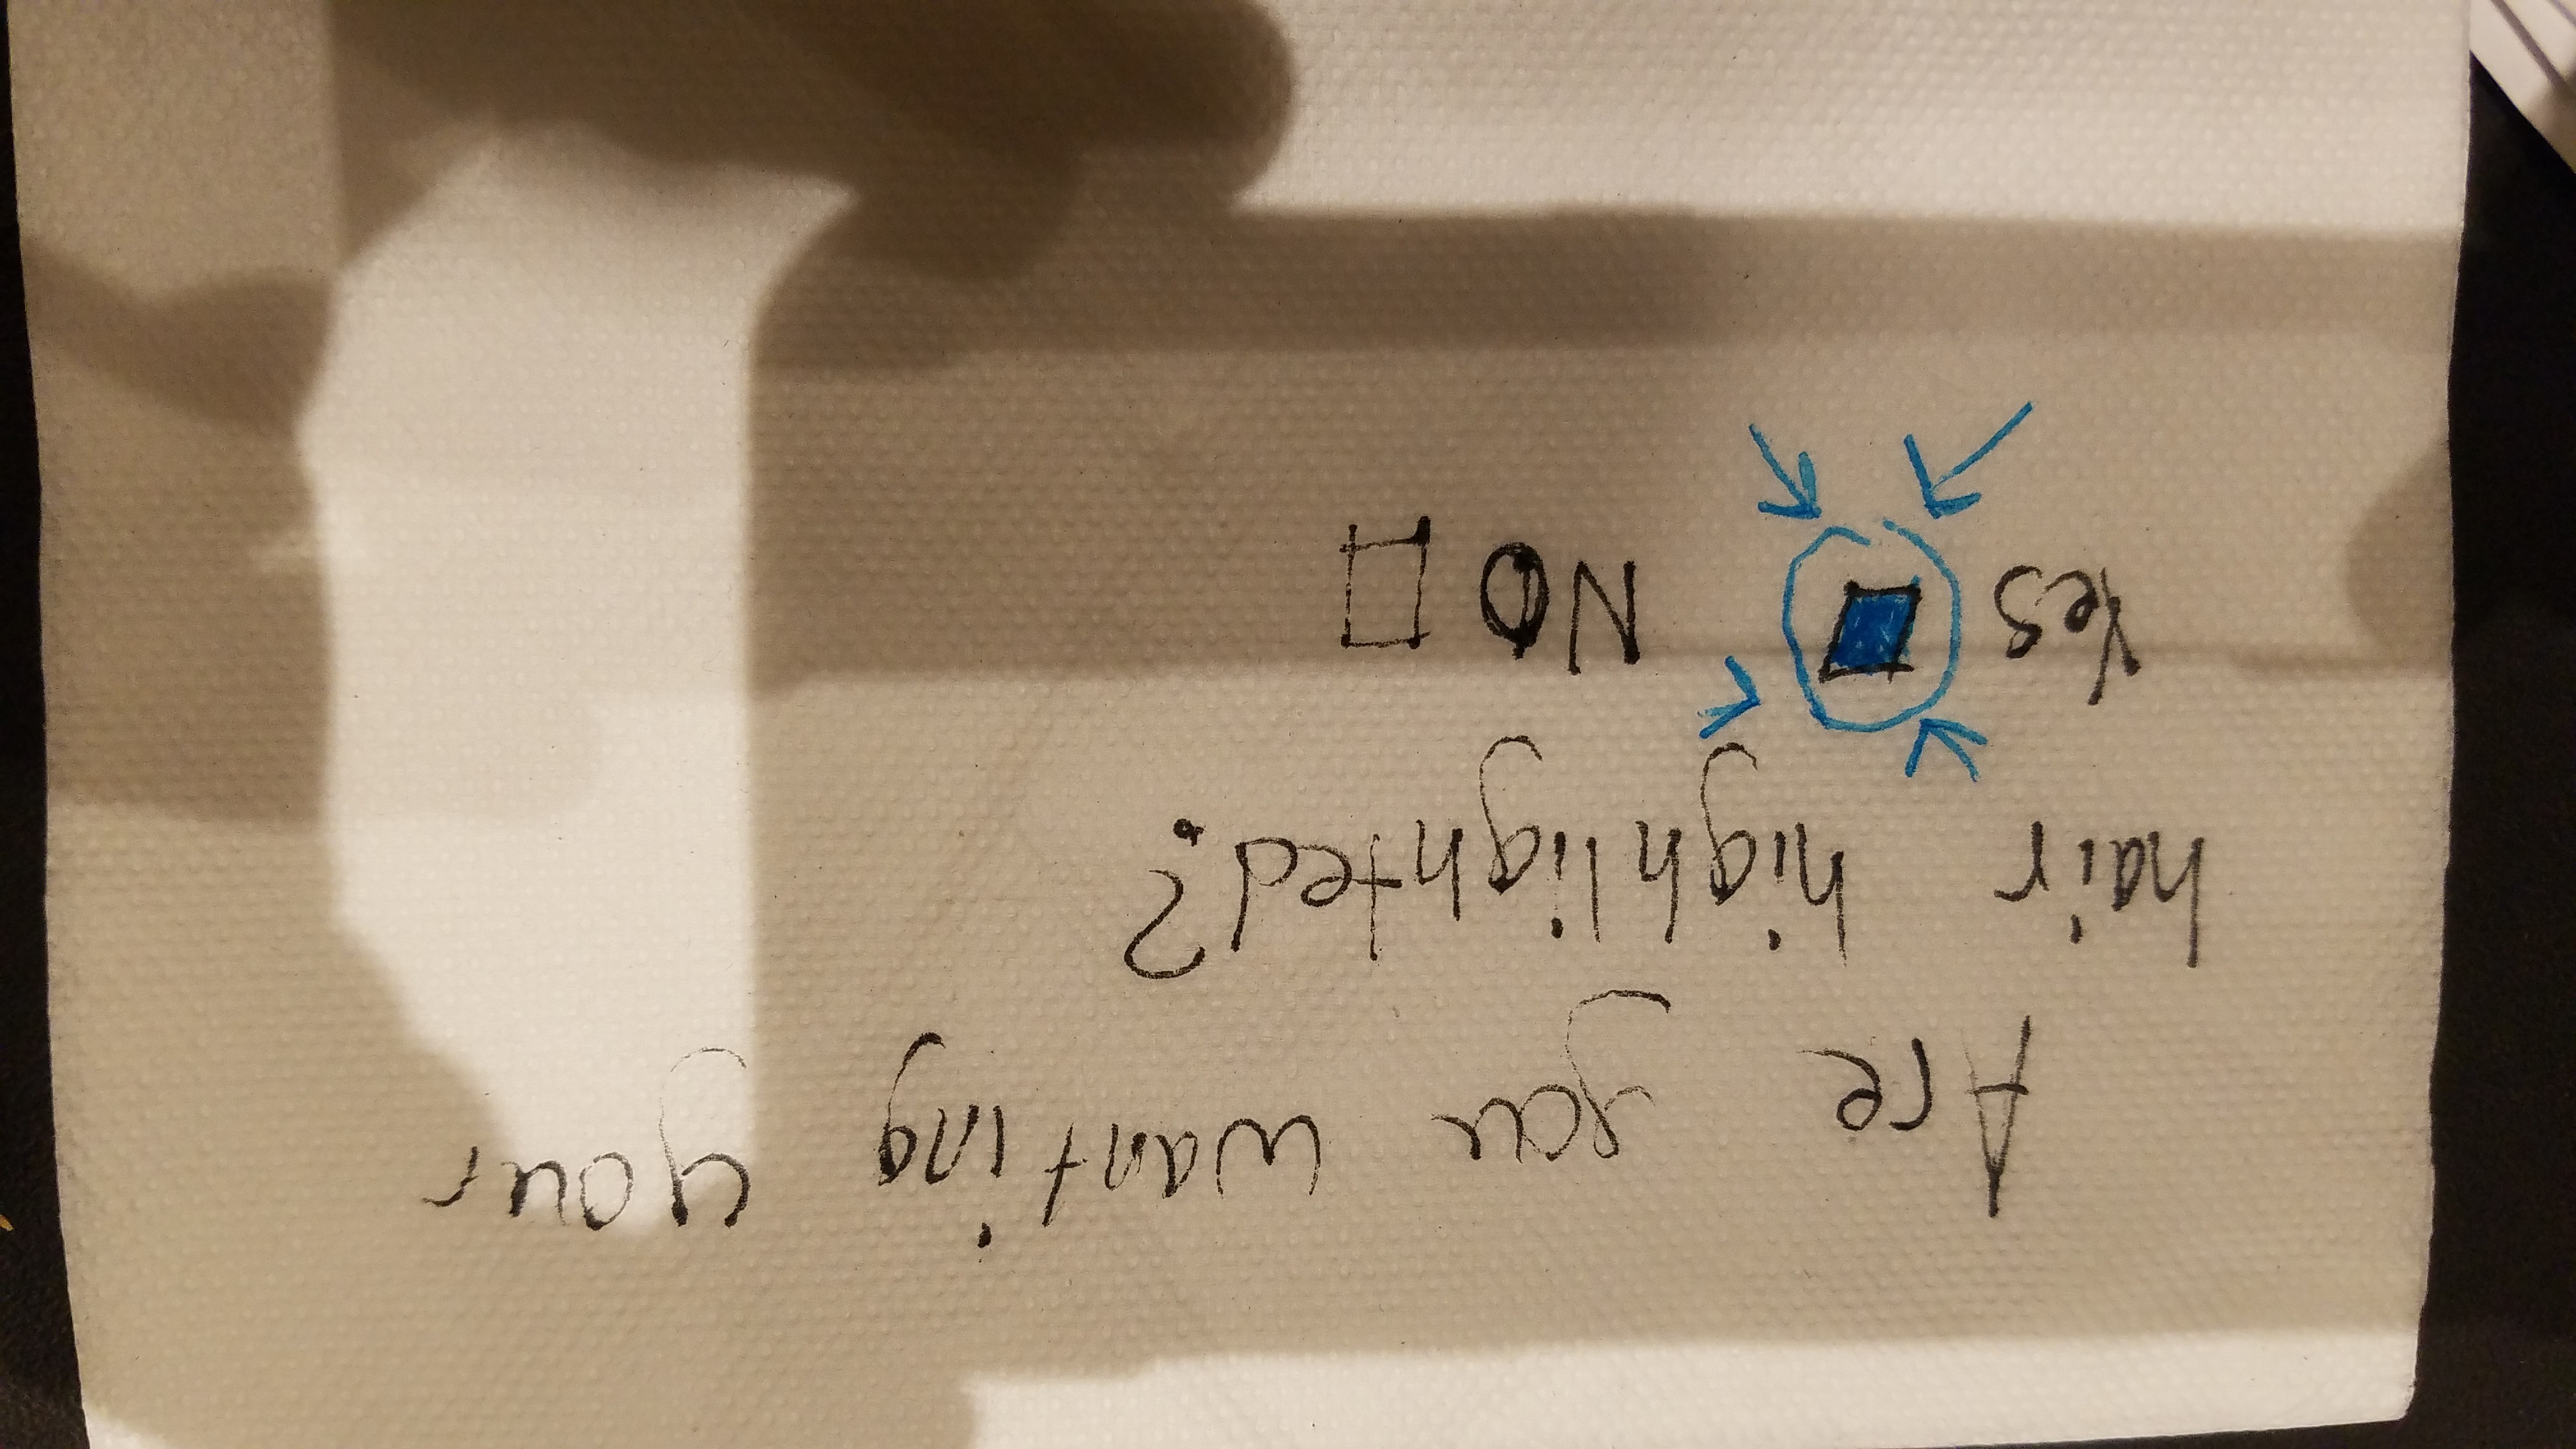 Are you wanting your
hair highlighted?
Yes ■ NO □